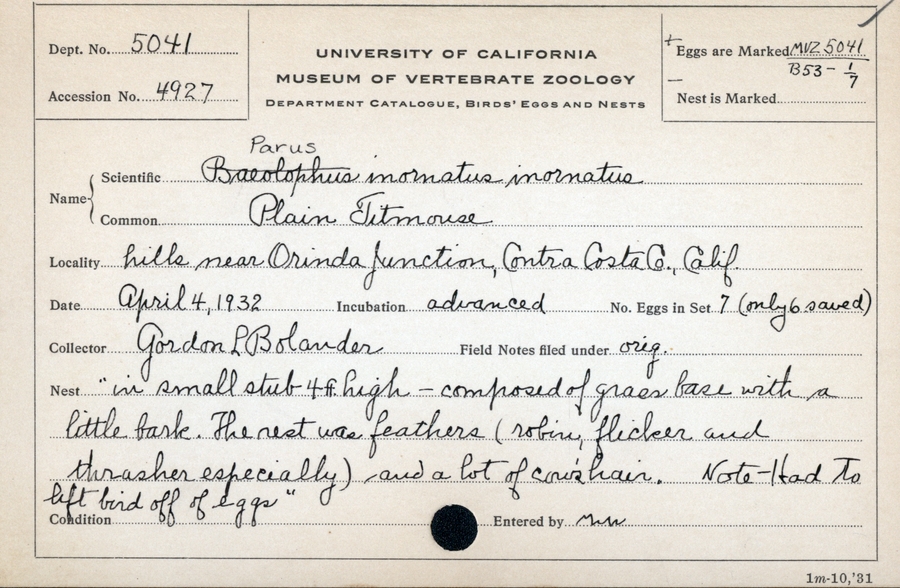 Dept. No. 5041
Accession No. 4927
UNIVERSITY OF CALIFORNIA
MUSEUM OF VERTEBRATE ZOOLOGY
DEPARTMENT CATALOGUE, BIRDS' EGGS AND NESTS
+ Eggs are Marked MVZ 5041
B53-1/7
– Nest is Marked
Parus
Name { Scientific Baeolophus inornatus inornatus
Common Plain Titmouse
Locality hills near Orinda Junction, Contra Costa Co., Calif.
Date April 4, 1932 Incubation advanced No. Eggs in Set 7 (only 6 saved)
Collector Gordon L Bolander Field Notes filed under orig.
Nest "in small stub 4 ft. high – composed of grass base with a
little bark. The rest was feathers (robin, flicker and
thrasher especially) and a lot of cow's hair. Note-Had to
lift bird off of eggs"
Condition Entered by
1m-10,'31